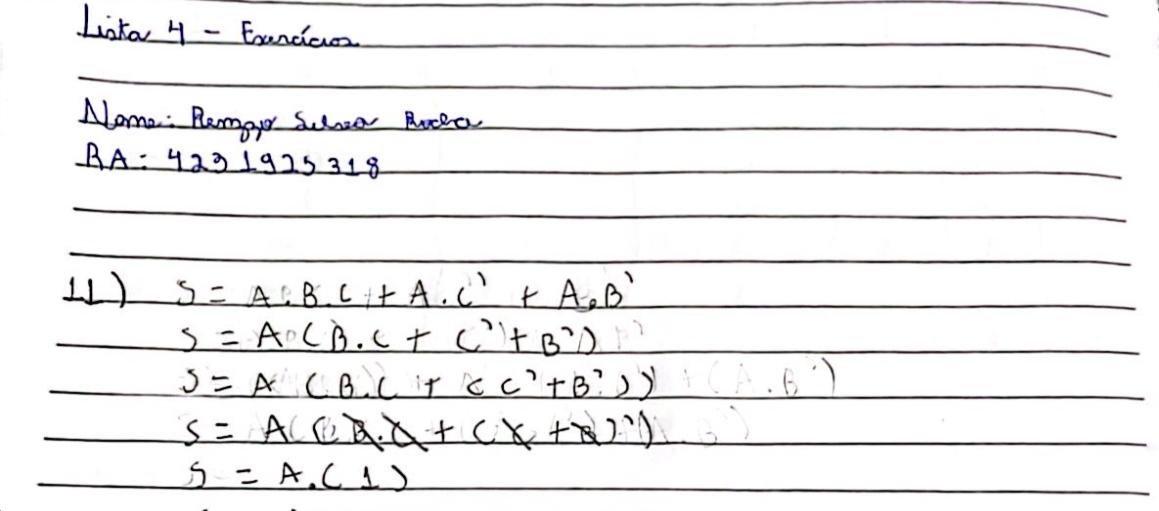 Lista 4 - Exercícios
Nome: Silva Rocha
RA: 4231925318
11) S = A.B.C + A.C' + A.B'
S = A(B.C + C' + B')
S = A (B.C + (C' + B'))
S = A((B.C + (C + B)')
S = A.(1)